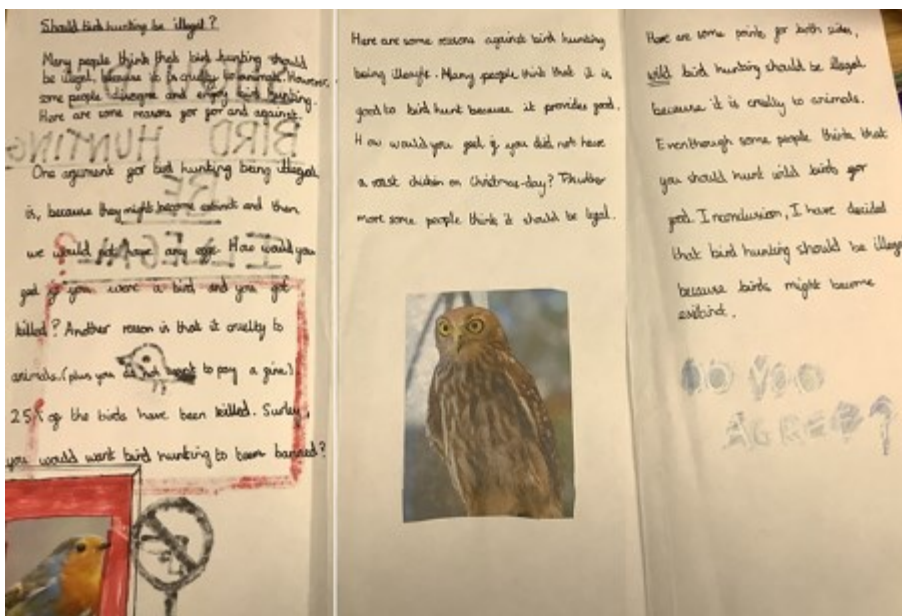 Should bird hunting be illegal?
Many people think that bird hunting should
be illegal, because it is cruelty to animals. However,
some people disagree and enjoy bird hunting.
Here are some reasons gor for and against.
BIRD HUNTING
BE
One agument gor bird hunting being illegal
is, because they might become extinct and then
we would not have any eggs. How would you
geel ig you were a bird and you got
killed? Another reason is that it cruelty to
animals. (plus you do not want to pay a gine)
25% og the birds have been killed. Surley,
you would want bird hunting to been banned?
Here are some reasons against bird hunting
being illeagle. Many people think that it is
good to bird hunt because it provides good.
How would you geel ig you did not have
a roast chicken on Christmas-day?
more some people think it should be legal.
Here are some points gor both sides,
wild bird hunting should be illegal
because it is cruelty to animals.
Eventhough some people think that
you should hunt wild birds gor
good. I nconclusion, I have decided
that bird hunting should be illegal
because birds might become
exitinct.
DO YOU
AGREE?